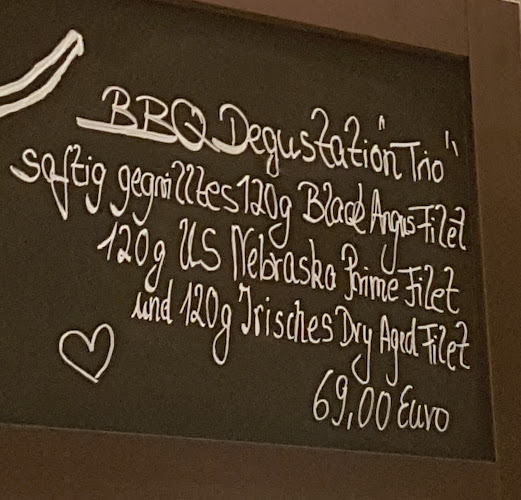 BBQ Degustation "Trio"
saftig gegrilltes 120g Black Angus Filet
120g US Nebraska Prime Filet
und 120g Irisches Dry Aged Filet
69,00 Euro